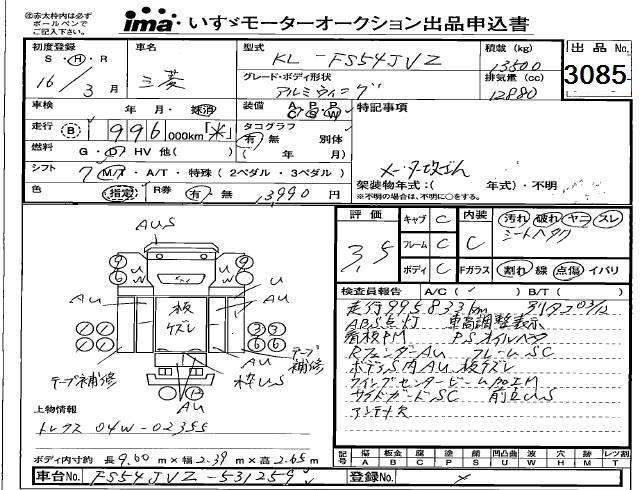 ㊟赤太枠内は必ず
ボールペンで
ご記入下さい。
ima® いすゞモーターオークション出品申込書
初度登録 車名 型式 KL-FS54JVZ 積載(kg) 13500 出品No.
S・H・R 16/3月 三菱 グレード・ボディ形状 アルミウィング 排気量(cc) 12880 3085
車検 年 月・抹消 装備 A/C P/S P/W 特記事項
走行 B 996 000km「*」 タコグラフ 有 無 別体 メーター改ざん
燃料 G・D・HV 他( ) ( 年 月)
シフト 7 M/T・A/T・特殊(2ペダル・3ペダル) 架装物年式:( 年式)・不明
色 指定 R券 有・無 13990円 ※不明の場合は、不明に○をする。
評価 3.5 キャブ C 内装 C 汚れ 破れ ヤニ スレ
フレーム C シートヘタリ
ボディ C Fガラス 割れ 線 点傷 イバリ
AUS
U W
U W
U
AU
AU
板ズレ
AU
AU
枠US
テープ補修
テープ補修
AU
検査員報告 A/C(✓) B/T( )
走行995833km 別タコ03/12
ABS点灯 車高調整表示
看板PM PSオイルハタ
RフェンダーAU フレームSC
ボディS内AU 板ズレ
ウイングセンタービーム加工M
サイドガードSC 前立US
アンテナ欠
上物情報
トレクス 04W-02355
ボディ内寸約 長9.60m×幅2.39m×高2.65m
記号 傷A 板金B 腐C 塗P 錆S 凹U 凸凹曲U 波W 穴H 跡M レツ割T
車台No. FS54JVZ-531259 登録No.